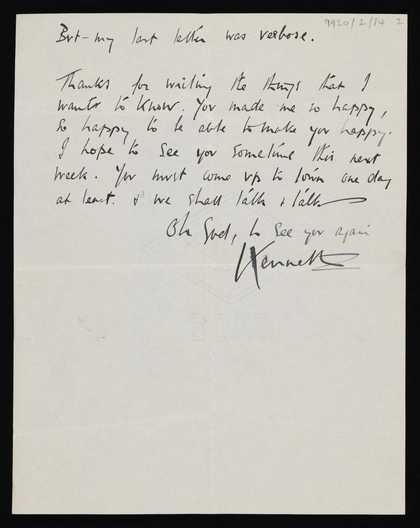 9920/2/14 2
But – my last letter was verbose.
Thanks for writing the things that I
want to know. You made me so happy,
so happy to be able to make you happy.
I hope to see you sometime this next
week. You must come up to town one day
at least. & we shall talk & talk
Oh God, to see you again
Kenneth